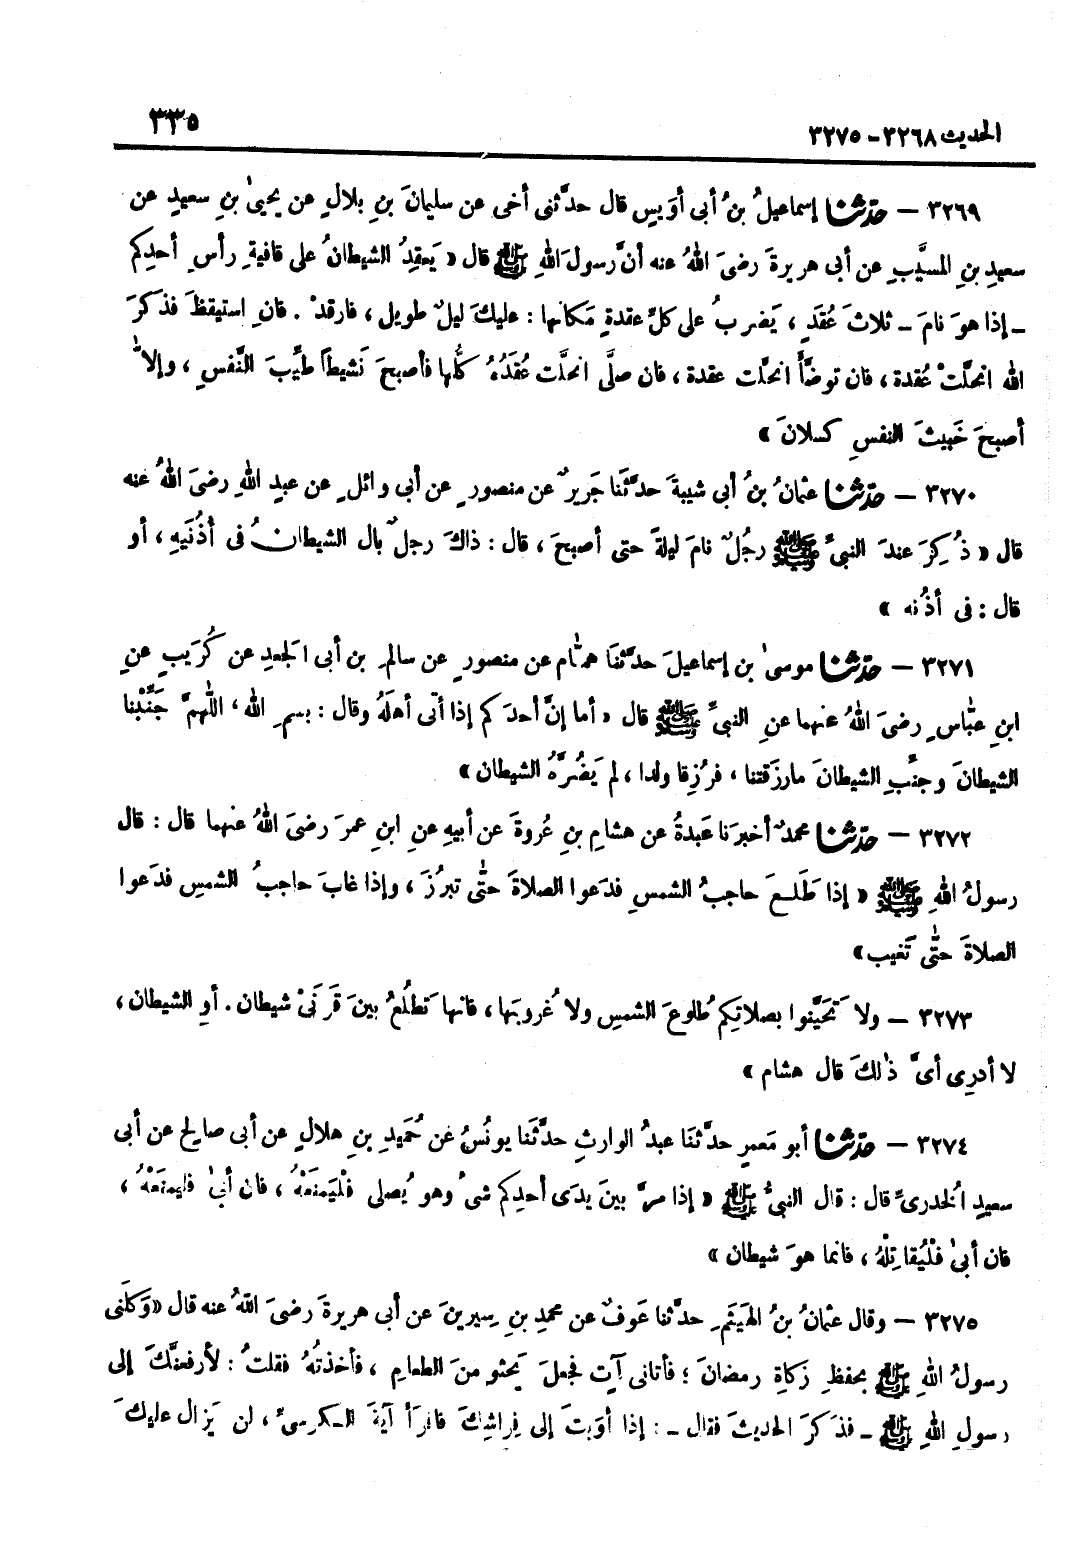 الحديث ٣٢٦٨ - ٣٢٧٥ ٣٣٥
٣٢٦٩ — حدّثنا إسماعيلُ بنُ أبى أوَيسٍ قال حدَّثنى أخى عن سليمانَ بنِ بلالٍ عن يحيىٰ بنِ سعيدٍ عن
سعيدِ بنِ المسيَّبِ عن أبى هريرةَ رضىَ اللهُ عنه أنَّ رسولَ اللهِ ﷺ قال « يَعقِدُ الشيطانُ على قافيةِ رأسِ أحدِكم
ـ إذا هوَ نامَ ـ ثلاثَ عُقَدٍ ، يَضربُ على كلِّ عقدةٍ مَكانَها : عليكَ ليلٌ طويل ، فارقدْ . فانِ استيقظَ فذكرَ
الله انحلَّتْ عُقدة ، فان توضَّأَ انحلَّت عقدة ، فان صلَّى انحلَّت عُقَدُهُ كلُّها فأصبحَ نَشيطاً طيِّبَ النَّفسِ ، وإلاّ
أصبحَ خَبيثَ النفسِ كسلانَ »
٣٢٧٠ — حدّثنا عثمانُ بنُ أبى شيبةَ حدَّثَنا جَريرٌ عن منصورٍ عن أبى وائلٍ عن عبدِ اللهِ رضىَ اللهُ عنه
قال « ذُكِرَ عندَ النبىِّ ﷺ رجُلٌ نامَ ليلةً حتى أصبحَ ، قال : ذاكَ رجلٌ بال الشيطانُ فى أذُنَيهِ ، أو
قال : فى أذُنه »
٣٢٧١ — حدّثنا موسىٰ بن إسماعيلَ حدَّثَنا همّام عن منصورٍ عن سالمِ بن أبى الجَعدِ عن كُرَيبٍ عنِ
ابنِ عبّاسٍ رضىَ اللهُ عنهما عنِ النبىِّ ﷺ قال « أما إنَّ أحدَكم إذا أتى أهلَهُ وقال : بسمِ الله ، اللّهمَّ جَنِّبْنا
الشيطانَ وجنِّبِ الشيطانَ مارزَقتنا ، فرُزِقا ولدا ، لم يَضُرَّهُ الشيطان »
٣٢٧٢ — حدّثنا محمدٌ أخبرَنا عَبدةُ عن هشامِ بنِ عُروةَ عن أبيهِ عنِ ابنِ عمرَ رضىَ اللهُ عنهما قال : قال
رسولُ اللهِ ﷺ « إذا طَلَعَ حاجبُ الشمسِ فدَعوا الصلاةَ حتّى تبرُزَ ، وإذا غابَ حاجبُ الشمسِ فدَعوا
الصلاةَ حتّى تَغيب »
٣٢٧٣ — ولا تَحَيَّنوا بصلاتِكم طُلوعَ الشمسِ ولا غُروبَها ، فانها تَطلُعُ بينَ قَرنَىْ شيطان . أوِ الشيطان ،
لا أدرِى أىَّ ذٰلكَ قال هشام »
٣٢٧٤ — حدّثنا أبو مَعمرٍ حدَّثَنا عبدُ الوارثِ حدَّثَنا يونُسُ عن حُمَيدِ بنِ هلالٍ عن أبى صالحٍ عن أبى
سعيدٍ الخُدرىِّ قال : قال النبىُّ ﷺ « إذا مرَّ بينَ يدَى أحدِكم شىءٌ وهو يُصلى فلْيَمنَعْهُ ، فان أبىٰ فليمنَعْهُ ،
فان أبىٰ فلْيُقاتِلْهُ ، فانما هوَ شيطان »
٣٢٧٥ — وقال عثمانُ بنُ الهَيثَمِ حدَّثَنا عَوفٌ عن محمدِ بنِ سِيرينَ عن أبى هريرةَ رضىَ اللهُ عنه قال « وَكلَنى
رسولُ اللهِ ﷺ بحفظِ زكاةِ رمضانَ ؛ فأتانى آتٍ فجعلَ يَحثو منَ الطعامِ ، فأخذتُهُ فقلتُ : لأرفعنَّكَ إلى
رسولِ اللهِ ﷺ ـ فذكَرَ الحديثَ فقال ـ : إذا أوَيتَ إلى فِراشِكَ فاقرَأْ آيةَ الكرسىِّ ، لن يَزالَ عليكَ